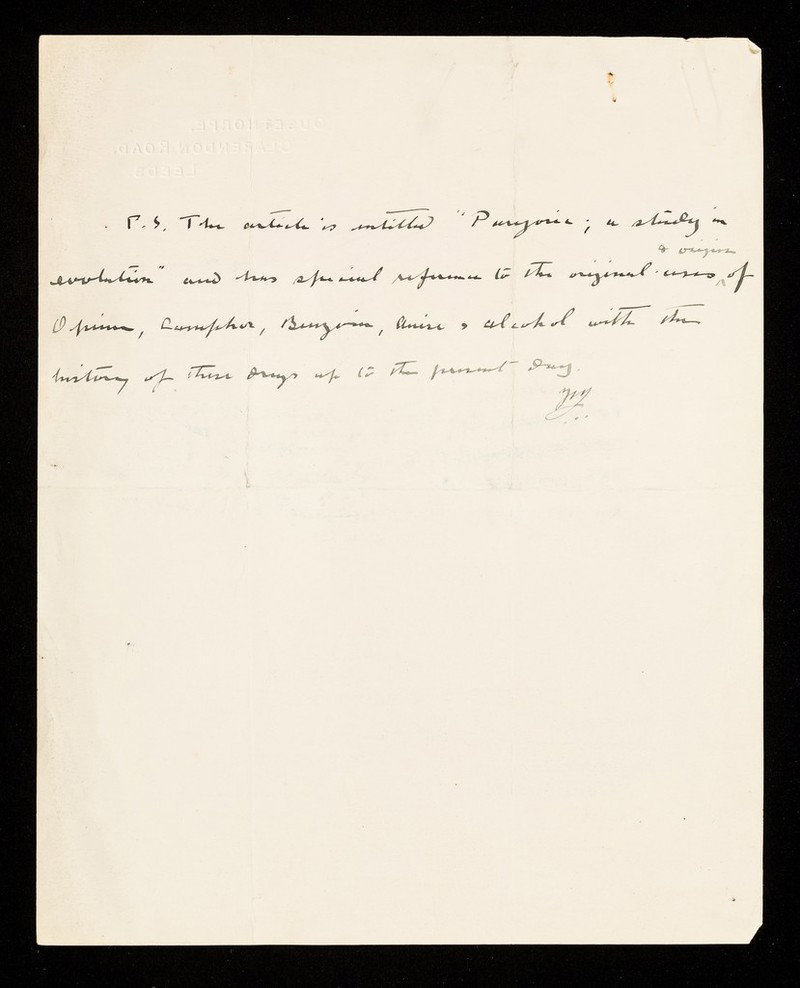 P.S. The article is entitled "Paregoric; a study in
& origin
evolution" and has special reference to the original uses of
Opium, Camphor, Benzoin, Anise & alcohol with the
history of these drugs up to the present day.
CLARENDON ROAD
LEEDS.